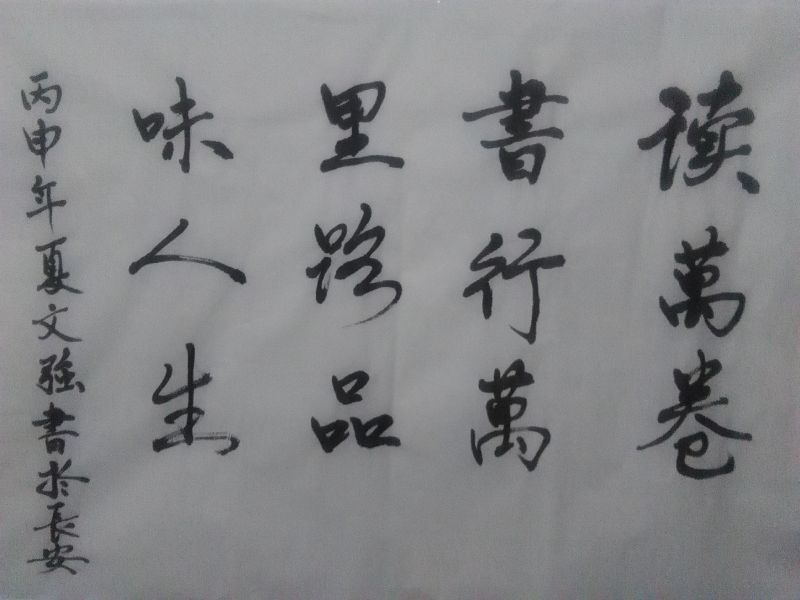 读萬卷
書行萬
里路品
味人生
丙申年夏文强書於長安